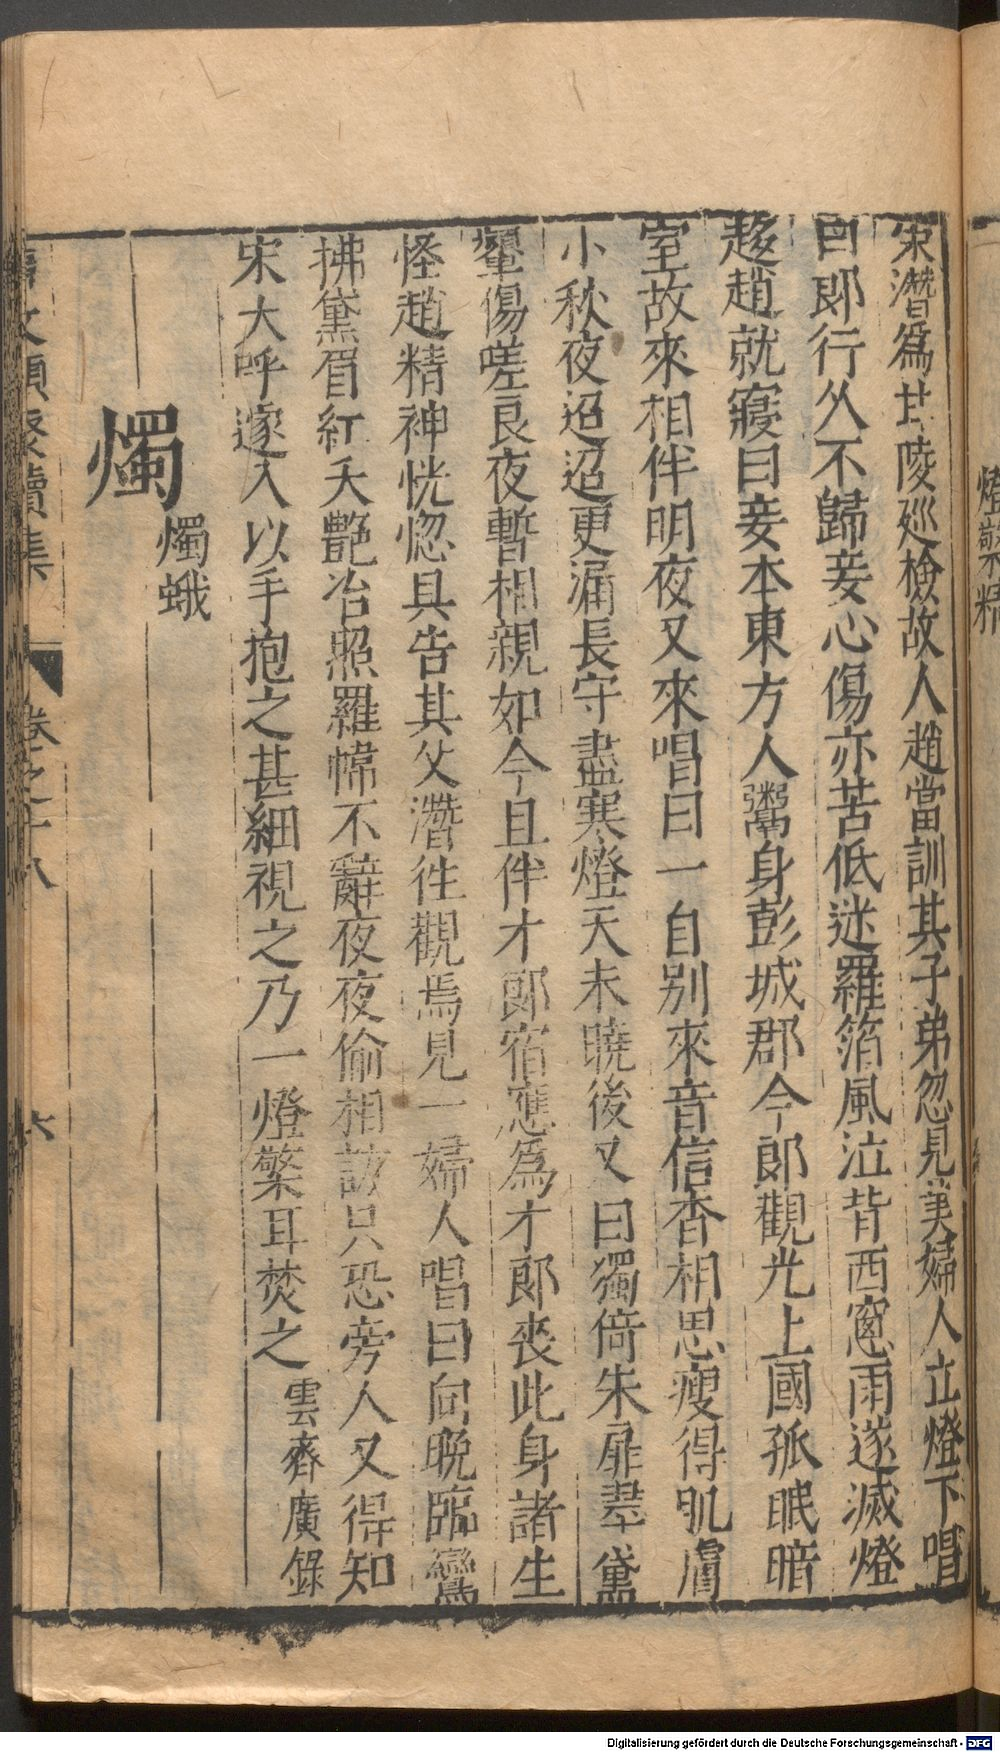 燈檠精
宋潛爲甘陵廵檢故人趙當訓其子弟忽見美婦人立燈下唱
曰郎行久不歸妾心傷亦苦低迷羅箔風泣背西窻雨遂滅燈
趍趙就寢曰妾本東方人鬻身彭城郡今郎觀光上國孤眠暗
室故來相伴明夜又來唱曰一自别來音信杳相思瘦得肌膚
小秋夜迢迢更漏長守盡寒燈天未曉後又曰獨倚朱扉翠黛
顰傷嗟良夜暫相親如今且伴才郎宿應爲才郎丧此身諸生
怪趙精神恍惚具告其父潛徃觀焉見一婦人唱曰向晚臨鸞
拂黛眉紅夭艷冶照羅幃不辭夜夜偷相訪只恐旁人又得知
宋大呼遽入以手抱之甚細視之乃一燈檠耳焚之 雲齋廣錄
燭
燭蛾
事文類聚續集 卷之十八 六
Digitalisierung gefördert durch die Deutsche Forschungsgemeinschaft - DFG